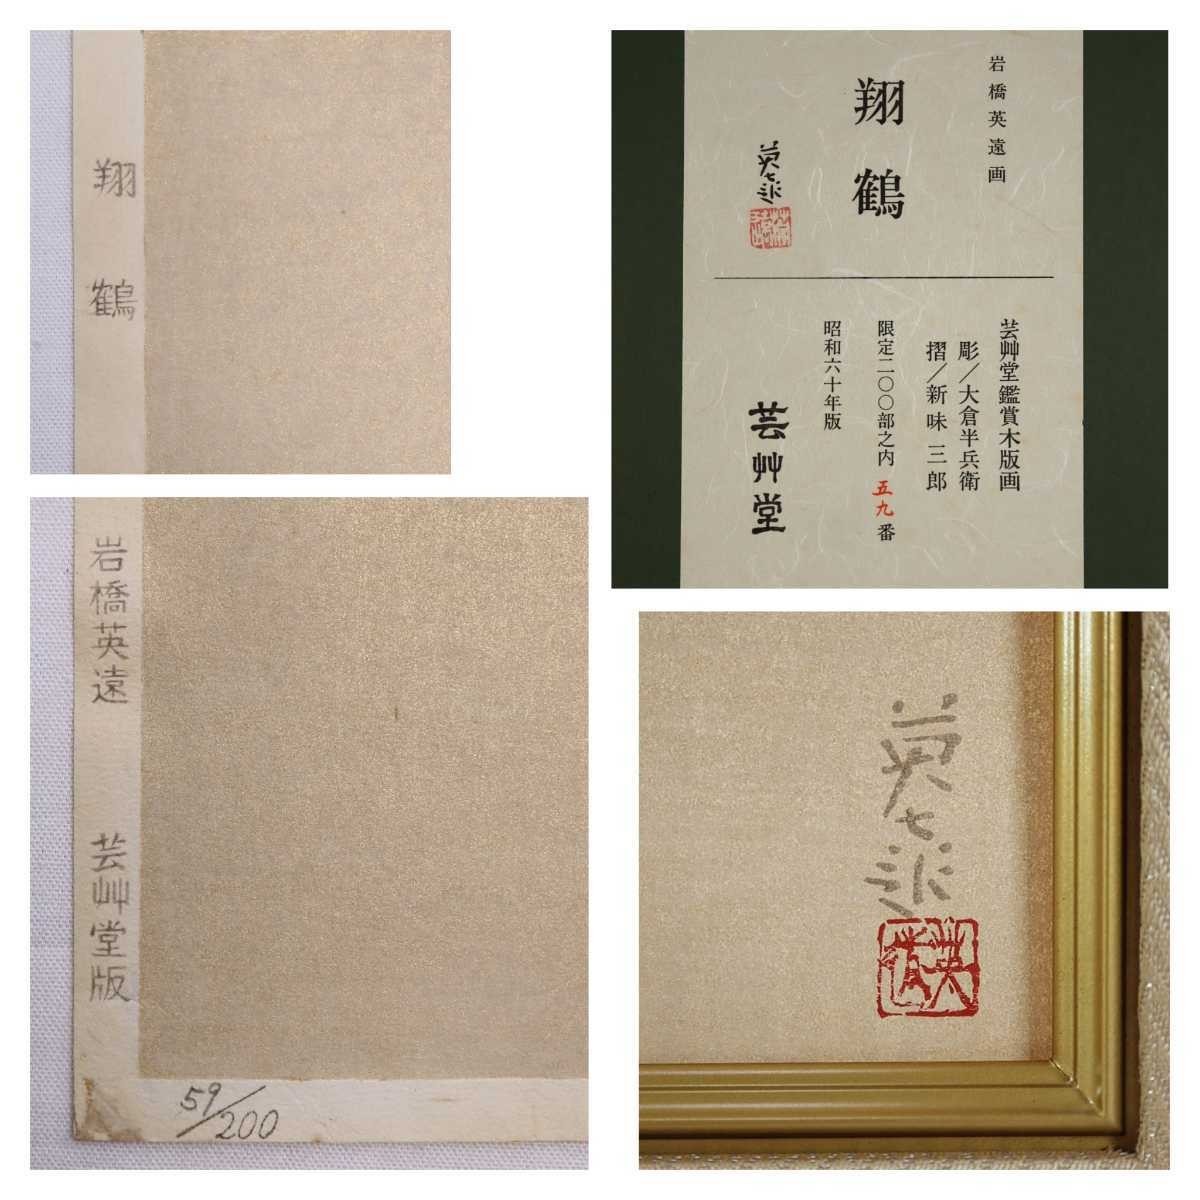 翔鶴
岩橋英遠画
翔鶴
英遠
芸艸堂鑑賞木版画
彫／大倉半兵衛
摺／新味三郎
限定二〇〇部之内 五九番
昭和六十年版
芸艸堂
岩橋英遠 芸艸堂版
59/200
英遠
英遠